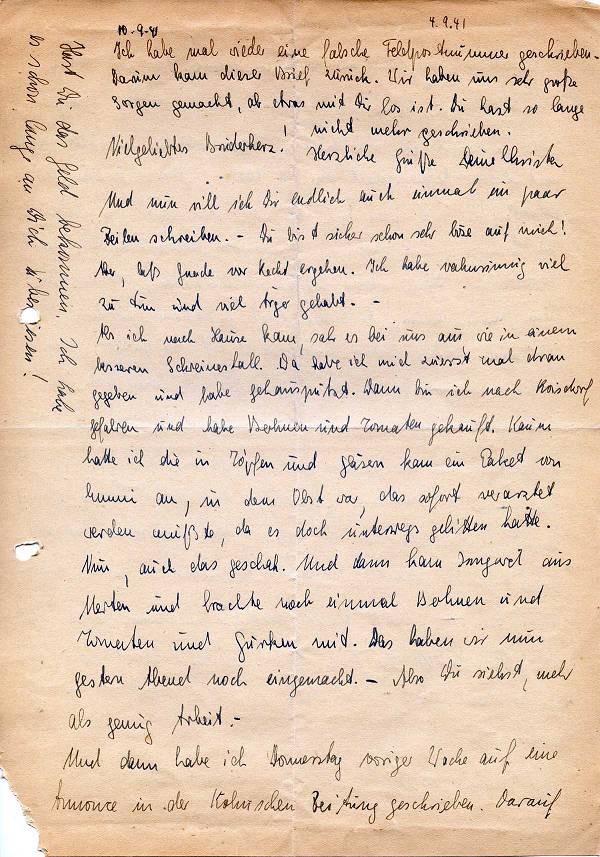 10-9-41
4.9.41
Ich habe mal wieder eine falsche Feldpostnummer geschrieben.
Darum kam dieser Brief zurück. Wir haben uns sehr große
Sorgen gemacht, ob etwas mit Dir los ist. Du hast so lange
nicht mehr geschrieben.
Vielgeliebtes Bruderherz!
Herzliche Grüße Deine Christa
Und nun will ich Dir endlich auch einmal ein paar
Zeilen schreiben. – Du bist sicher schon sehr böse auf mich!
laß Gnade vor Recht ergehen. Ich habe wahnsinnig viel
zu tun und viel Ärger gehabt. –
Als ich nach Hause kam, sah es bei uns aus, wie in einem
besseren Schweinestall. Da habe ich mich zuerst mal dran
gegeben und habe gehausputzt. Dann bin ich nach Roisdorf
gefahren und habe Bohnen und Tomaten gekauft. Kaum
hatte ich die in Töpfen und Gläsern kam ein Paket von
an, in dem Obst war, das sofort verarztet
werden mußte, da es doch unterwegs gelitten hatte.
Nun, auch das geschah. Und dann kam Irmgard aus
Merten und brachte noch einmal Bohnen und
Tomaten und Gurken mit. Das haben wir nun
gestern Abend noch eingemacht. – Also Du siehst, mehr
als genug Arbeit. –
Und dann habe ich Donnerstag voriger Woche auf eine
Annonce in der Kölnischen Zeitung geschrieben. Darauf
Hast Du das Geld bekommen. Ich habe
es schon lange an Dich überwiesen!